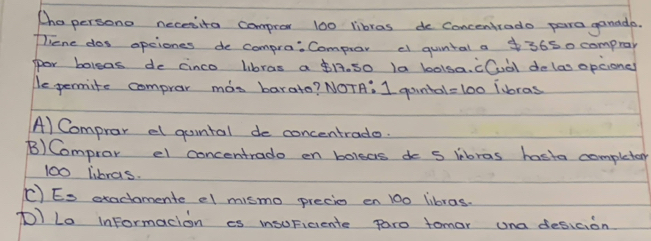 Una persona necesita comprar 100 libras de concentrado para ganado.
Tiene dos opciones de compra: Comprar el quintal a $365 o comprar
por bolsas de cinco libras a $17.50 la bolsa. ¿Cuál de las opciones
le permite comprar más barato? NOTA: 1 quintal = 100 libras
A) Comprar el quintal de concentrado.
B) Comprar el concentrado en bolsas de 5 libras hasta completar
100 libras.
C) Es exactamente el mismo precio en 100 libras.
D) La información es insuficiente para tomar una desición.